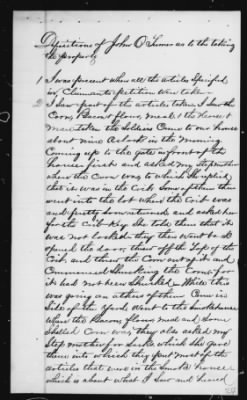 Depositions of John O'Times as to the taking
the property
1 I was present when all the articles specified
in Claimants petition were taken
2 I saw part of the articles taken I saw the
Corn, Bacon flour, meal, & the
taken the Soldiers Came to our house
about nine A clock in the morning
Coming up to the gate in front of the
house first and asked my Stepmother
where the Corn was to which She replied
that it was in the Crib Some of them then
went into the lot where the Crib was
and pretty soon returned and asked her
for the Crib Key She told them that it
was not locked they then went to &
opened the door, threw off the Top of the
Crib and threw the Corn out of it and
Commenced Shucking the Corn for
it had not been Shucked While this
was going on others of them Came in
Side of the yard Went to the Smokehouse
where the Bacon, flour, meal and Some
Shelled Corn was they also asked my
Step mother for Sacks which She gave
them into which they put most of the
articles that were in the Smoke house
which is about what I saw and heard